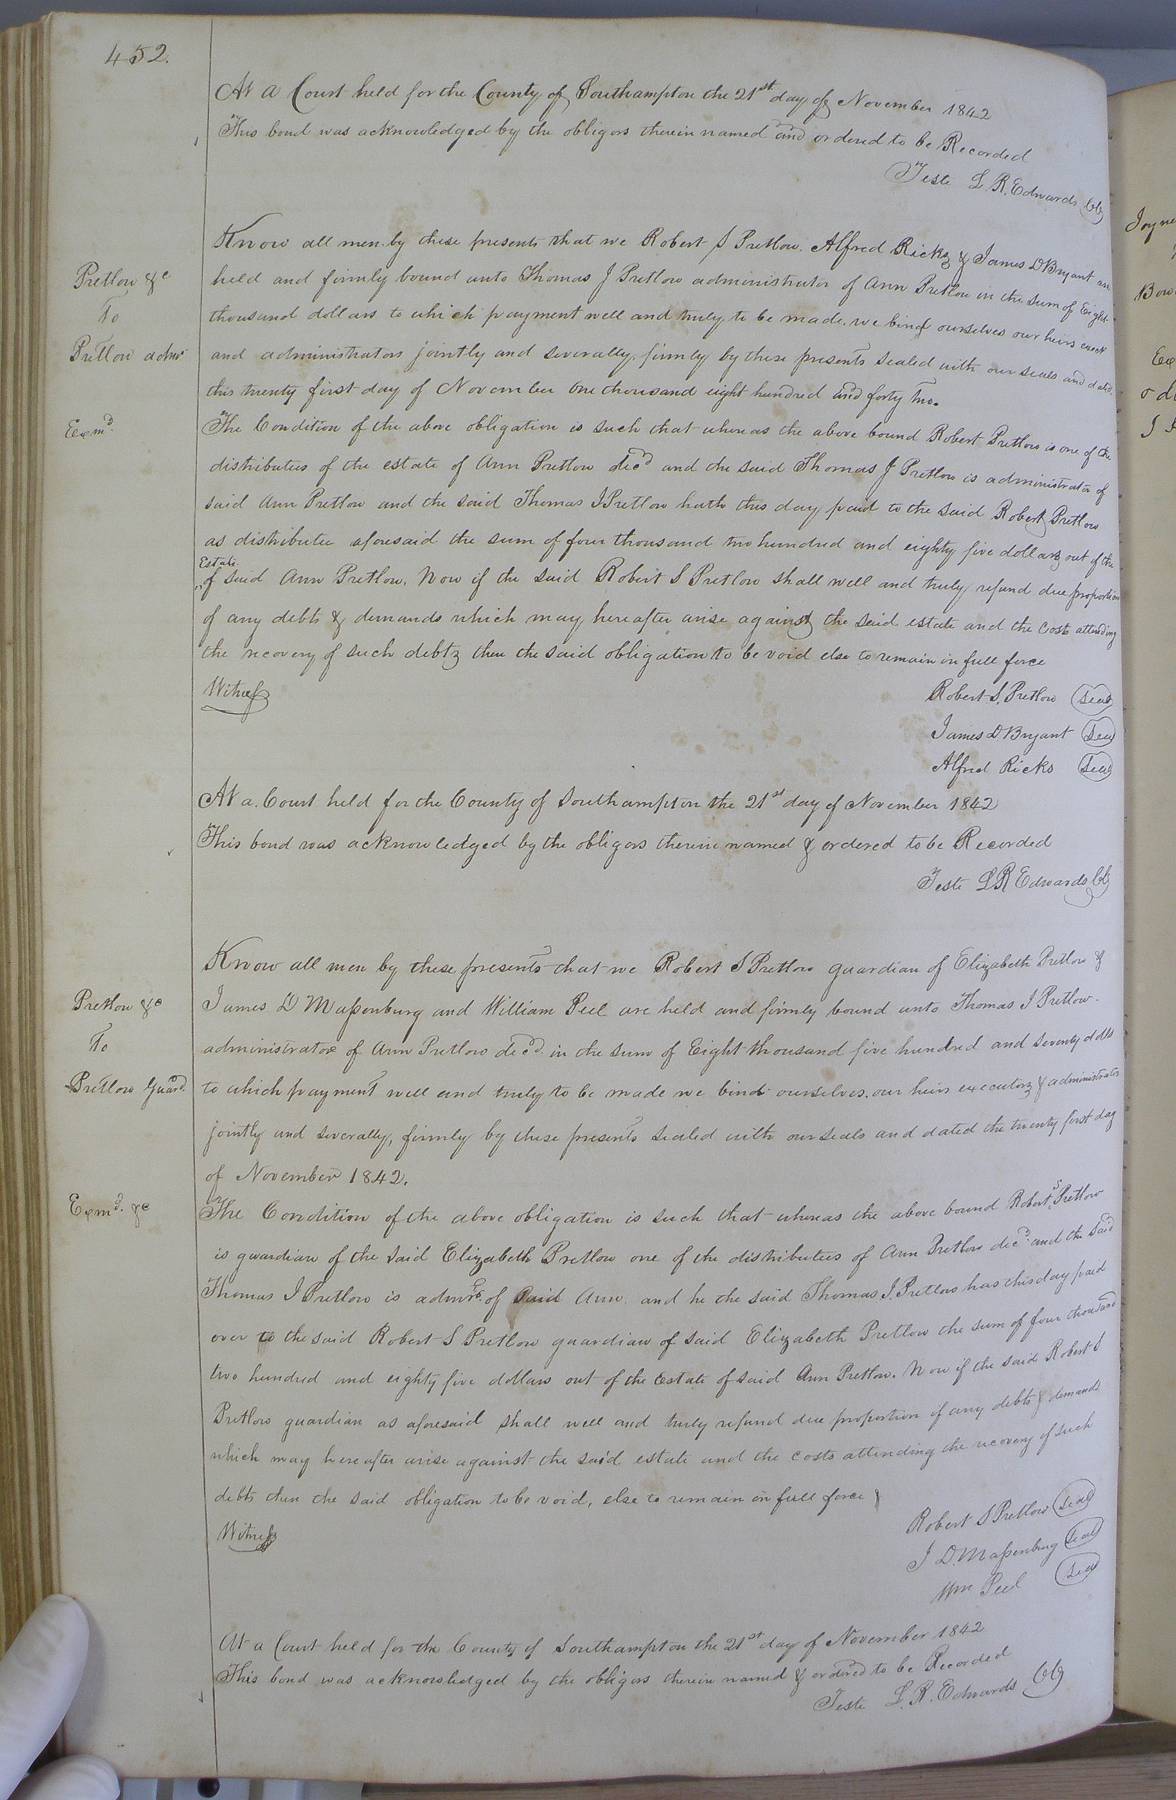 452.
At a Court held for the County of Southampton the 21st day of November 1842
This bond was acknowledged by the obligors therein named and ordered to be Recorded
Teste L. R. Edwards Clk
Pretlow &c
To
Pretlow admr
Exmd
Know all men by these presents that we Robert S Pretlow, Alfred Ricks & James D Bryant are
held and firmly bound unto Thomas J Pretlow administrator of Ann Pretlow in the sum of Eight
thousand dollars to which payment well and truly to be made, we bind ourselves our heirs
and administrators jointly and severally, firmly by these presents sealed with our seals and dated
this twenty first day of November one thousand eight hundred and forty two.
The Condition of the above obligation is such that whereas the above bound Robert Pretlow is one of the
distributees of the estate of Ann Pretlow decd and the said Thomas J Pretlow is administrator of
said Ann Pretlow and the said Thomas J Pretlow hath this day paid to the said Robert Pretlow
as distributee aforesaid the sum of four thousand two hundred and eighty five dollars out of the
Estate
of said Ann Pretlow, Now if the said Robert S Pretlow shall well and truly refund due proportion
of any debts & demands which may hereafter arise against the said estate and the costs attending
the recovery of such debts then the said obligation to be void else to remain in full force
Witness
Robert S. Pretlow Seal
James D Bryant Seal
Alfred Ricks Seal
At a Court held for the County of Southampton the 21st day of November 1842
This bond was acknowledged by the obligors therein named & ordered to be Recorded
Teste L R Edwards Clk
Pretlow &c
To
Pretlow Guard
Exmd. &c
Know all men by these presents that we Robert S Pretlow guardian of Elizabeth Pretlow &
James D Massenburg and William Peel are held and firmly bound unto Thomas J Pretlow
administrator of Ann Pretlow decd in the sum of Eight thousand five hundred and seventy dolls
to which payment well and truly to be made we bind ourselves, our heirs executors & administrators
jointly and severally, firmly by these presents sealed with our seals and dated the twenty first day
of November 1842.
The Condition of the above obligation is such that whereas the above bound Robert S Pretlow
is guardian of the said Elizabeth Pretlow one of the distributees of Ann Pretlow decd and the said
Thomas J Pretlow is admr of said Ann and he the said Thomas J. Pretlow has this day paid
over to the said Robert S Pretlow guardian of said Elizabeth Pretlow the sum of four thousand
two hundred and eighty five dollars out of the Estate of said Ann Pretlow. Now if the said Robert S
Pretlow guardian as aforesaid shall well and truly refund due proportion of any debts & demands
which may hereafter arise against the said estate and the costs attending the recovery of such
debts then the said obligation to be void, else to remain in full force
Witness
Robert S Pretlow Seal
J D. Massenburg Seal
Wm Peel Seal
At a Court held for the County of Southampton the 21st day of November 1842
This bond was acknowledged by the obligors therein named & ordered to be Recorded
Teste L. R. Edwards Clk